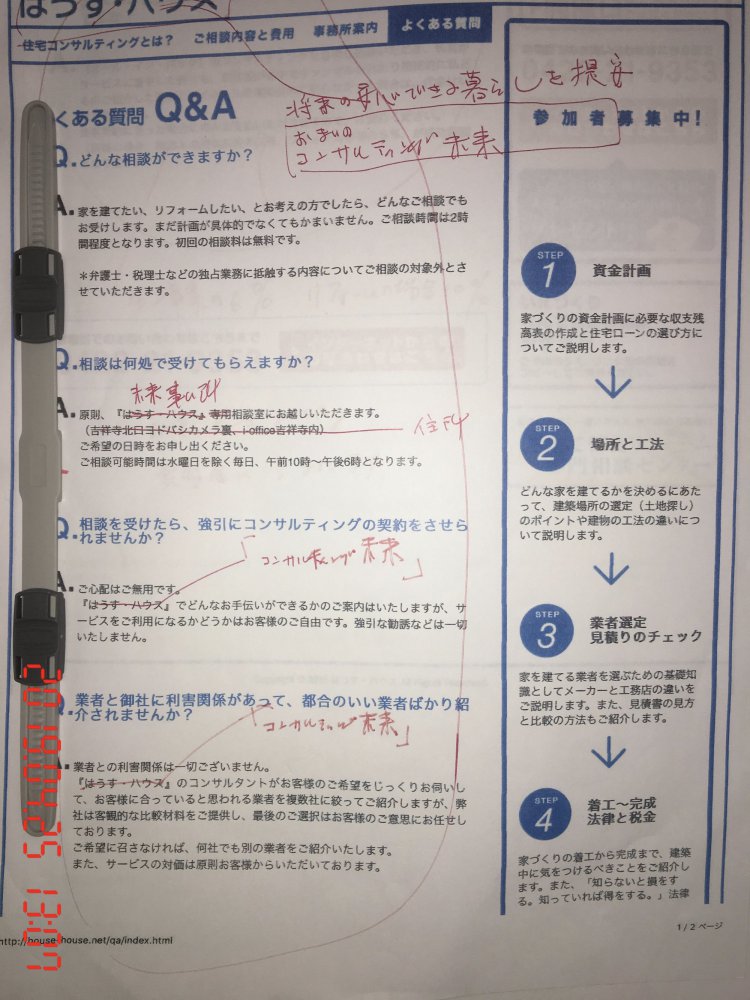 はうす・ハウス
住宅コンサルティングとは？ ご相談内容と費用 事務所案内 よくある質問
くある質問 Q&A
将来の安心できる暮らしを提案
おすまいの
コンサルティング 未来
Q. どんな相談ができますか？
A. 家を建てたい、リフォームしたい、とお考えの方でしたら、どんなご相談でも
お受けします。まだ計画が具体的でなくてもかまいません。ご相談時間は2時
間程度となります。初回の相談料は無料です。
＊弁護士・税理士などの独占業務に抵触する内容についてご相談の対象外とさ
せていただきます。
Q. 相談は何処で受けてもらえますか？
未来
A. 原則、『はうす・ハウス』専用相談室にお越しいただきます。
（吉祥寺北口ヨドバシカメラ裏、i-office吉祥寺内）
住所
ご希望の日時をお申し出ください。
ご相談可能時間は水曜日を除く毎日、午前10時～午後6時となります。
Q. 相談を受けたら、強引にコンサルティングの契約をさせら
れませんか？
「コンサルティング 未来」
A. ご心配はご無用です。
『はうす・ハウス』でどんなお手伝いができるかのご案内はいたしますが、サ
ービスをご利用になるかどうかはお客様のご自由です。強引な勧誘などは一切
いたしません。
Q. 業者と御社に利害関係があって、都合のいい業者ばかり紹
介されませんか？
「コンサルティング 未来」
A. 業者との利害関係は一切ございません。
『はうす・ハウス』のコンサルタントがお客様のご希望をじっくりお伺いし
て、お客様に合っていると思われる業者を複数社に絞ってご紹介しますが、弊
社は客観的な比較材料をご提供し、最後のご選択はお客様のご意思にお任せし
ております。
ご希望に召さなければ、何社でも別の業者をご紹介いたします。
また、サービスの対価は原則お客様からいただいております。
参加者募集中！
STEP
1 資金計画
家づくりの資金計画に必要な収支残
高表の作成と住宅ローンの選び方に
ついてご説明します。
STEP
2 場所と工法
どんな家を建てるかを決めるにあた
って、建築場所の選定（土地探し）
のポイントや建物の工法の違いにつ
いて説明します。
STEP
3 業者選定
見積りのチェック
家を建てる業者を選ぶための基礎知
識としてメーカーと工務店の違いを
ご説明します。また、見積書の見方
と比較の方法もご紹介します。
STEP
4 着工～完成
法律と税金
家づくりの着工から完成まで、建築
中に気をつけるべきことをご紹介し
ます。また、「知らないと損をす
る。知っていれば得をする。」法律
1 / 2 ページ
http://house-house.net/qa/index.html
2019/04/25 13:07